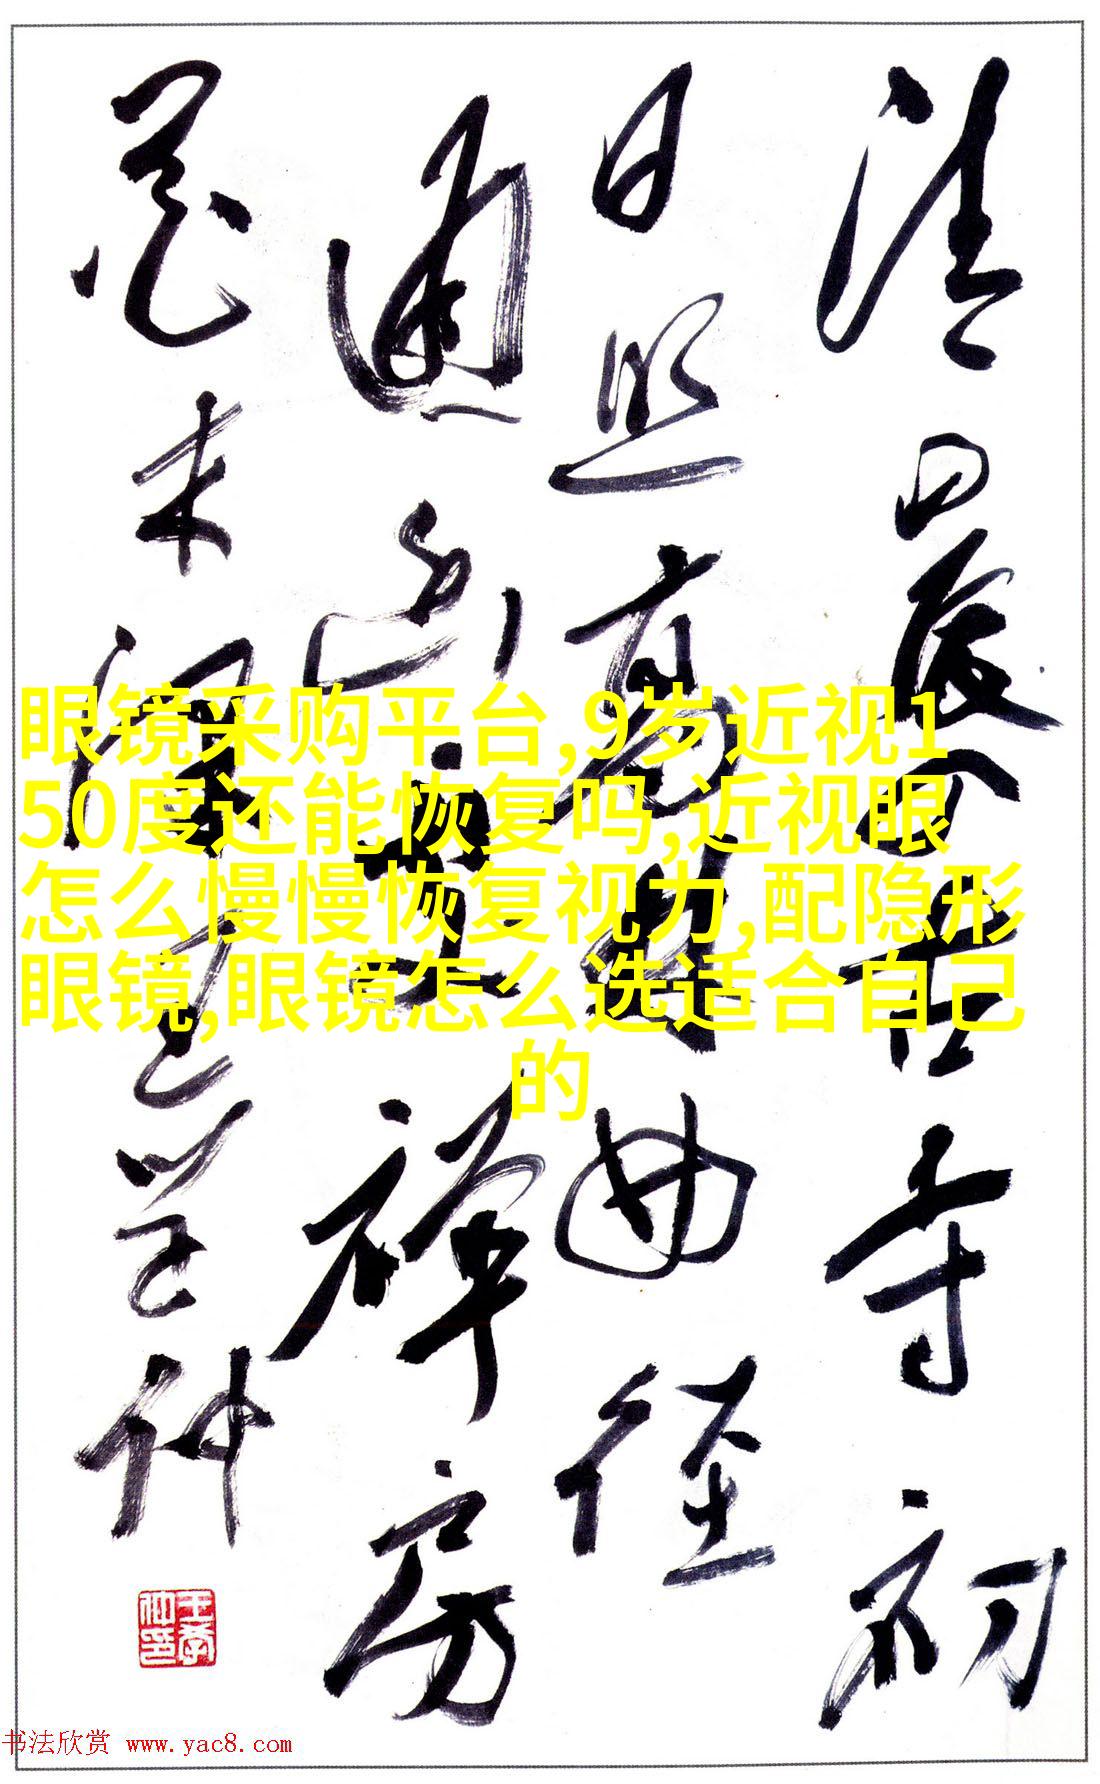 清晨入古寺初
日照高林曲径
通幽处禅房
花木深
王学仲
眼镜采购平台,9岁近视1
50度还能恢复吗,近视眼
怎么慢慢恢复视力,配隐形
眼镜,眼镜怎么选适合自己
的
书法欣赏 www.yac8.com